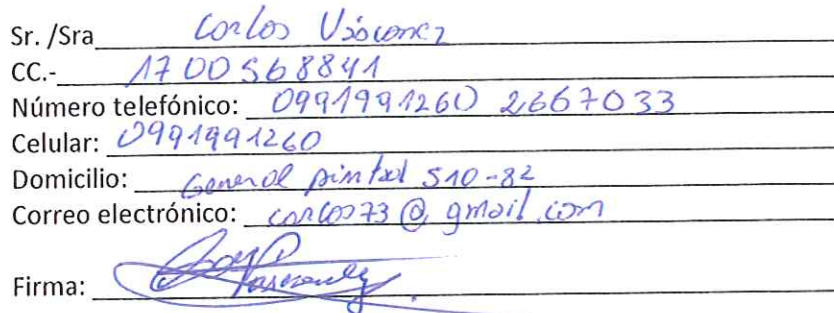 Sr. /Sra Carlos Váscones
CC.- 1700568841
Número telefónico: 0991991260 2667033
Celular: 0991991260
Domicilio: General pintal S10-82
Correo electrónico: carlos73@gmail.com
Firma: